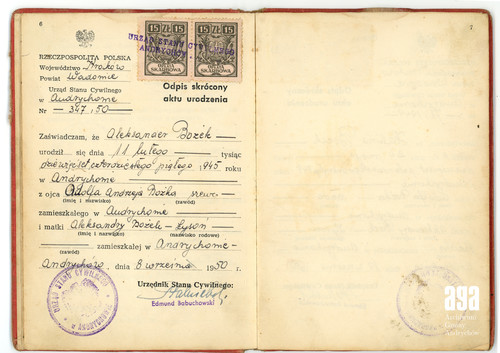 6
7
15 ZŁ 15
15 ZŁ 15
OPŁATA SKARBOWA
OPŁATA SKARBOWA
URZĄD STANU CYWILNEGO
RZECZPOSPOLITA POLSKA
Województwo Kraków
Powiat Wadowice
Urząd Stanu Cywilnego
w Andrychowie
Nr 347/50
Odpis skrócony
aktu urodzenia
Zaświadczam, że Aleksander Bożek
urodził się dnia 11 lutego tysiąc
dziewięćset czterdziestego piątego 1945 roku
w Andrychowie
z ojca Adolfa Andrzeja Bożka szewc
(imię i nazwisko) (zawód)
zamieszkałego w Andrychowie
i matki Aleksandry Bożek - Łysoń
(imię i nazwisko) (nazwisko rodowe)
zamieszkałej w Andrychowie
(zawód)
Andrychów, dnia 8 września 1950 r.
Urzędnik Stanu Cywilnego:
Edmund Babuchowski
aga
Archiwum
Andrychów